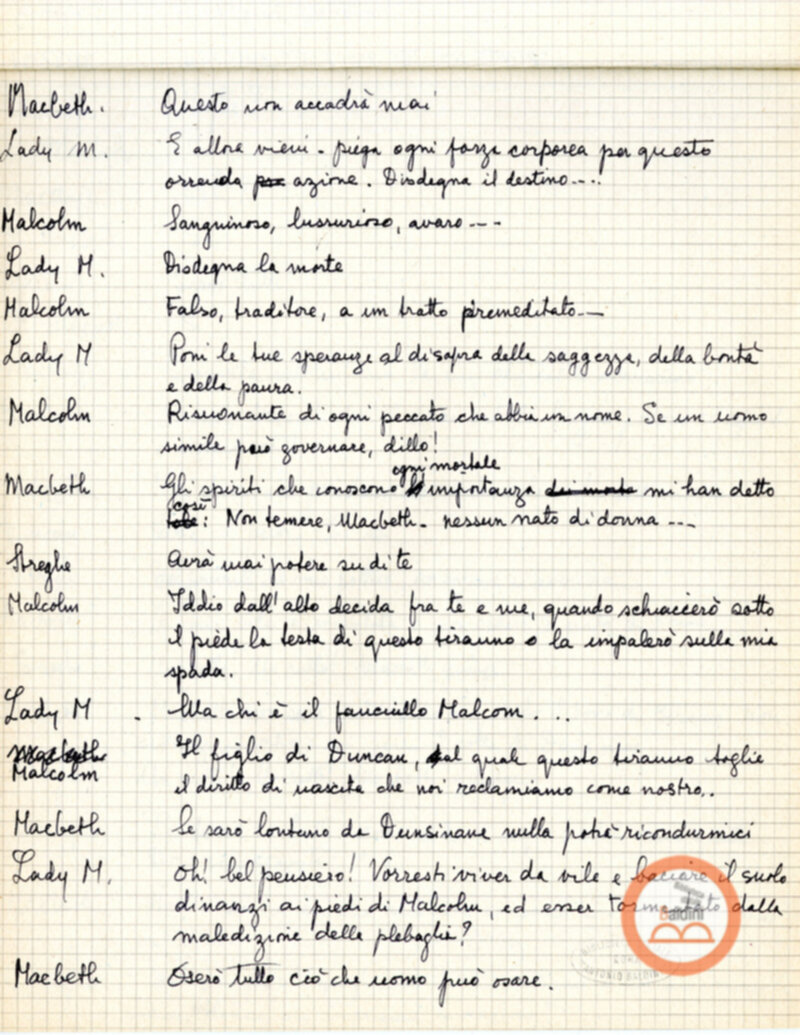 Macbeth. Questo non accadrà mai
Lady M. E allora vieni - piega ogni forza corporea per questo
orrenda per azione. Disdegna il destino....
Malcolm Sanguinoso, lussurioso, avaro ---
Lady M. Disdegna la morte
Malcolm Falso, traditore, a un tratto premeditato...
Lady M Poni le tue speranze al disopra della saggezza, della bontà
e della paura.
Malcolm Risuonante di ogni peccato che abbia un nome. Se un uomo
simile può governare, dillo!
ogni mortale
Macbeth Gli spiriti che conoscono importanza mi han detto
così
: Non temere, Macbeth - nessun nato di donna ---
Streghe Avrà mai potere su di te
Malcolm Iddio dall'alto decida fra te e me, quando schiaccerò sotto
il piede la testa di questo tiranno o la impalerò sulla mia
spada.
Lady M - Ma chi è il fanciullo Malcom...
Macbeth
Malcolm Il figlio di Duncan, al quale questo tiranno toglie
il diritto di nascita che noi reclamiamo come nostro..
Macbeth Se sarò lontano da Dunsinane nulla potrà ricondurmici
Lady M. Oh! bel pensiero! Vorresti viver da vile e baciare il suolo
dinanzi ai piedi di Malcolm, ed esser tormentato dalla
maledizione della plebaglia?
Baldini
ANTONIO BALDINI
Macbeth Oserò tutto ciò che uomo può osare.